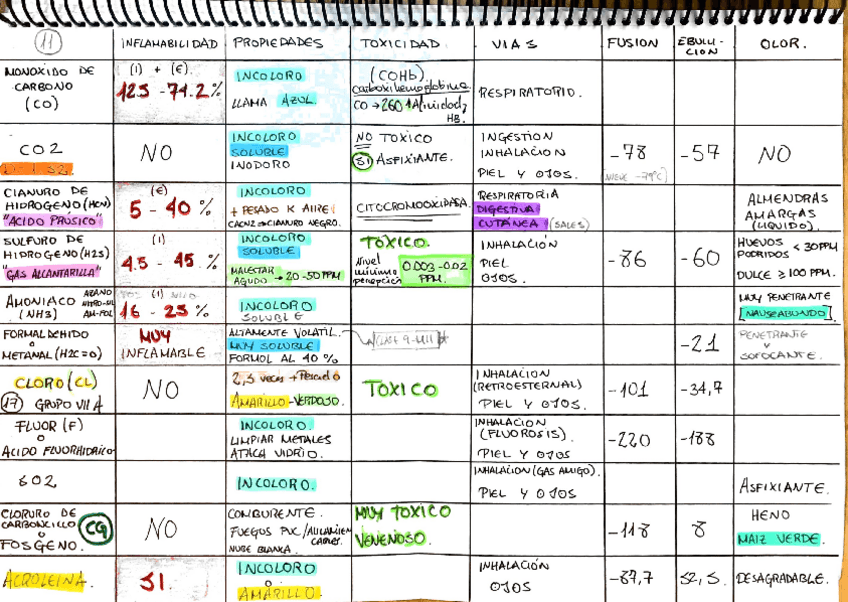 11 INFLAMABILIDAD PROPIEDADES TOXICIDAD VIAS FUSION EBULLICION OLOR.
MONOXIDO DE CARBONO (CO)
(I) + (E)
12.5 - 74.2%
INCOLORO
LLAMA AZUL.
(COHb)
carboxihemoglobina
CO → 260 Afinidad HB.
RESPIRATORIO.
CO2
NO
INCOLORO
SOLUBLE
INODORO
NO TOXICO
SI ASFIXIANTE.
INGESTION
INHALACION
PIEL Y OJOS.
-78
(NIEVE -79ºC)
-57
NO
CIANURO DE
HIDROGENO (HCN)
"ACIDO PRÚSICO"
(E)
5 - 40 %
INCOLORO
+ PESADO K AIRE
CITOCROMOOXIDASA.
RESPIRATORIA
DIGESTIVA
CUTÁNEA (SALES)
ALMENDRAS
AMARGAS
(LIQUIDO)
SULFURO DE
HIDROGENO (H2S)
"GAS ALCANTARILLA"
(I)
4.5 - 45 %
INCOLORO
SOLUBLE
MALESTAR
AGUDO → 20-50 PPM
TOXICO.
Nivel
mínimo
percepción
0.003-0.02
PPM.
INHALACION
PIEL
OJOS.
-86
-60
HUEVOS
PODRIDOS < 30 PPM
DULCE ≥ 100 PPM.
AMONIACO
(NH3)
(I)
16 - 25 %
INCOLORO
SOLUBLE
MUY PENETRANTE
NAUSEABUNDO
FORMALDEHIDO
o
METANAL (H2C=O)
MUY
INFLAMABLE
ALTAMENTE VOLATIL.
MUY SOLUBLE
FORMOL AL 40 %
-21
PENETRANTE
Y
SOFOCANTE.
CLORO (CL)
17 GRUPO VII A
NO
2,5 veces + Pesado
AMARILLO-VERDOSO.
TOXICO
INHALACION
(RETROESTERNAL)
PIEL Y OJOS.
-101
-34,7
FLUOR (F)
o
ACIDO FLUORHIDRICO
INCOLORO.
LIMPIAR METALES
ATACA VIDRIO.
INHALACION
(FLUOROSIS).
PIEL Y OJOS
-220
-188
SO2
INCOLORO.
INHALACION (GAS AMIGO).
PIEL Y OJOS
ASFIXIANTE.
CLORURO DE
CARBONCILLO
o
FOSGENO.
CG
NO
COMBURENTE.
FUEGOS PVC/AISLAMIEN
CABLES.
NUBE BLANCA.
MUY TOXICO
VENENOSO.
-118
8
HENO
MAIZ VERDE.
ACROLEINA.
SI.
INCOLORO
o
AMARILLO.
INHALACIÓN
OJOS
-87,7
52,5.
DESAGRADABLE.